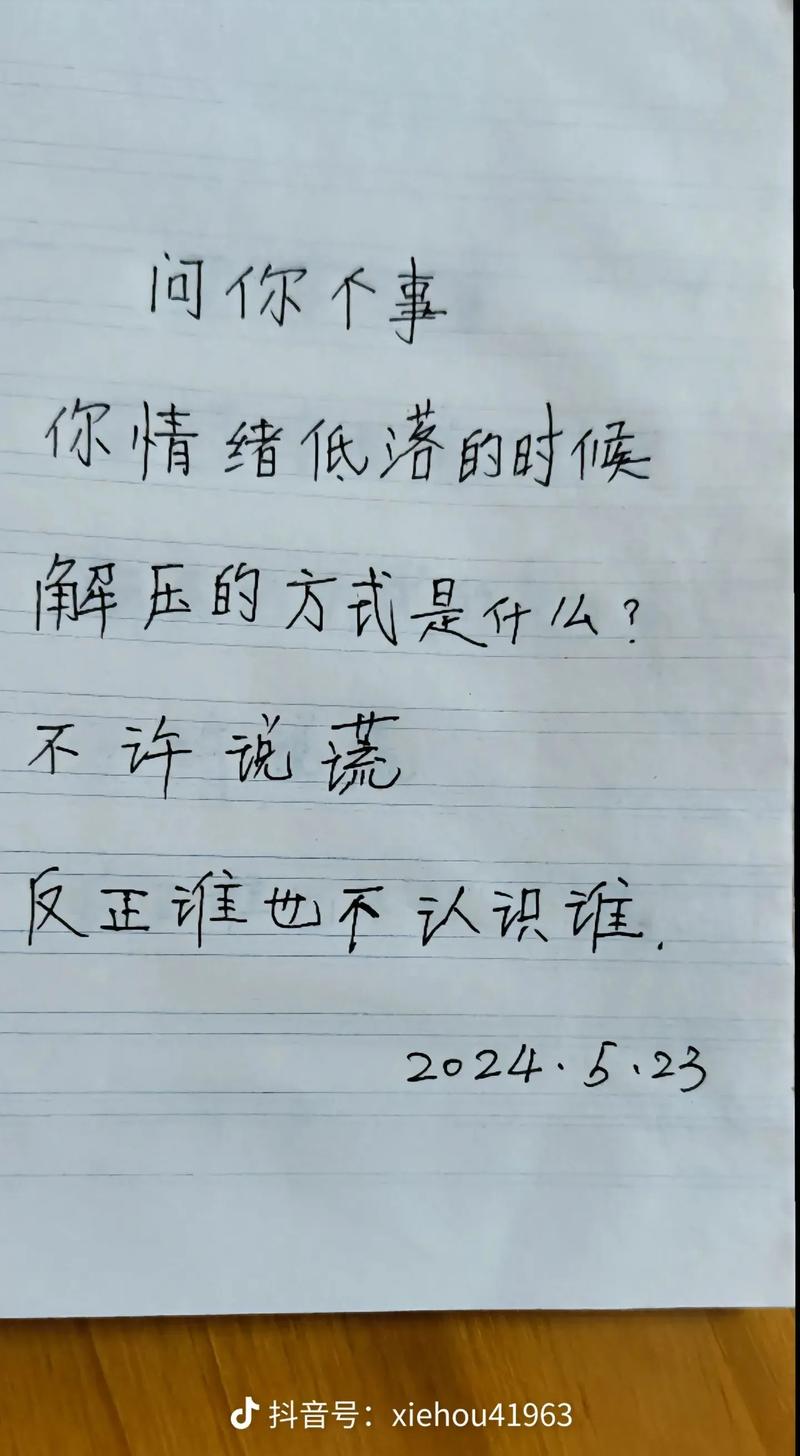 问你个事
你情绪低落的时候
解压的方式是什么?
不许说谎
反正谁也不认识谁.
2024.5.23
抖音号：xiehou41963